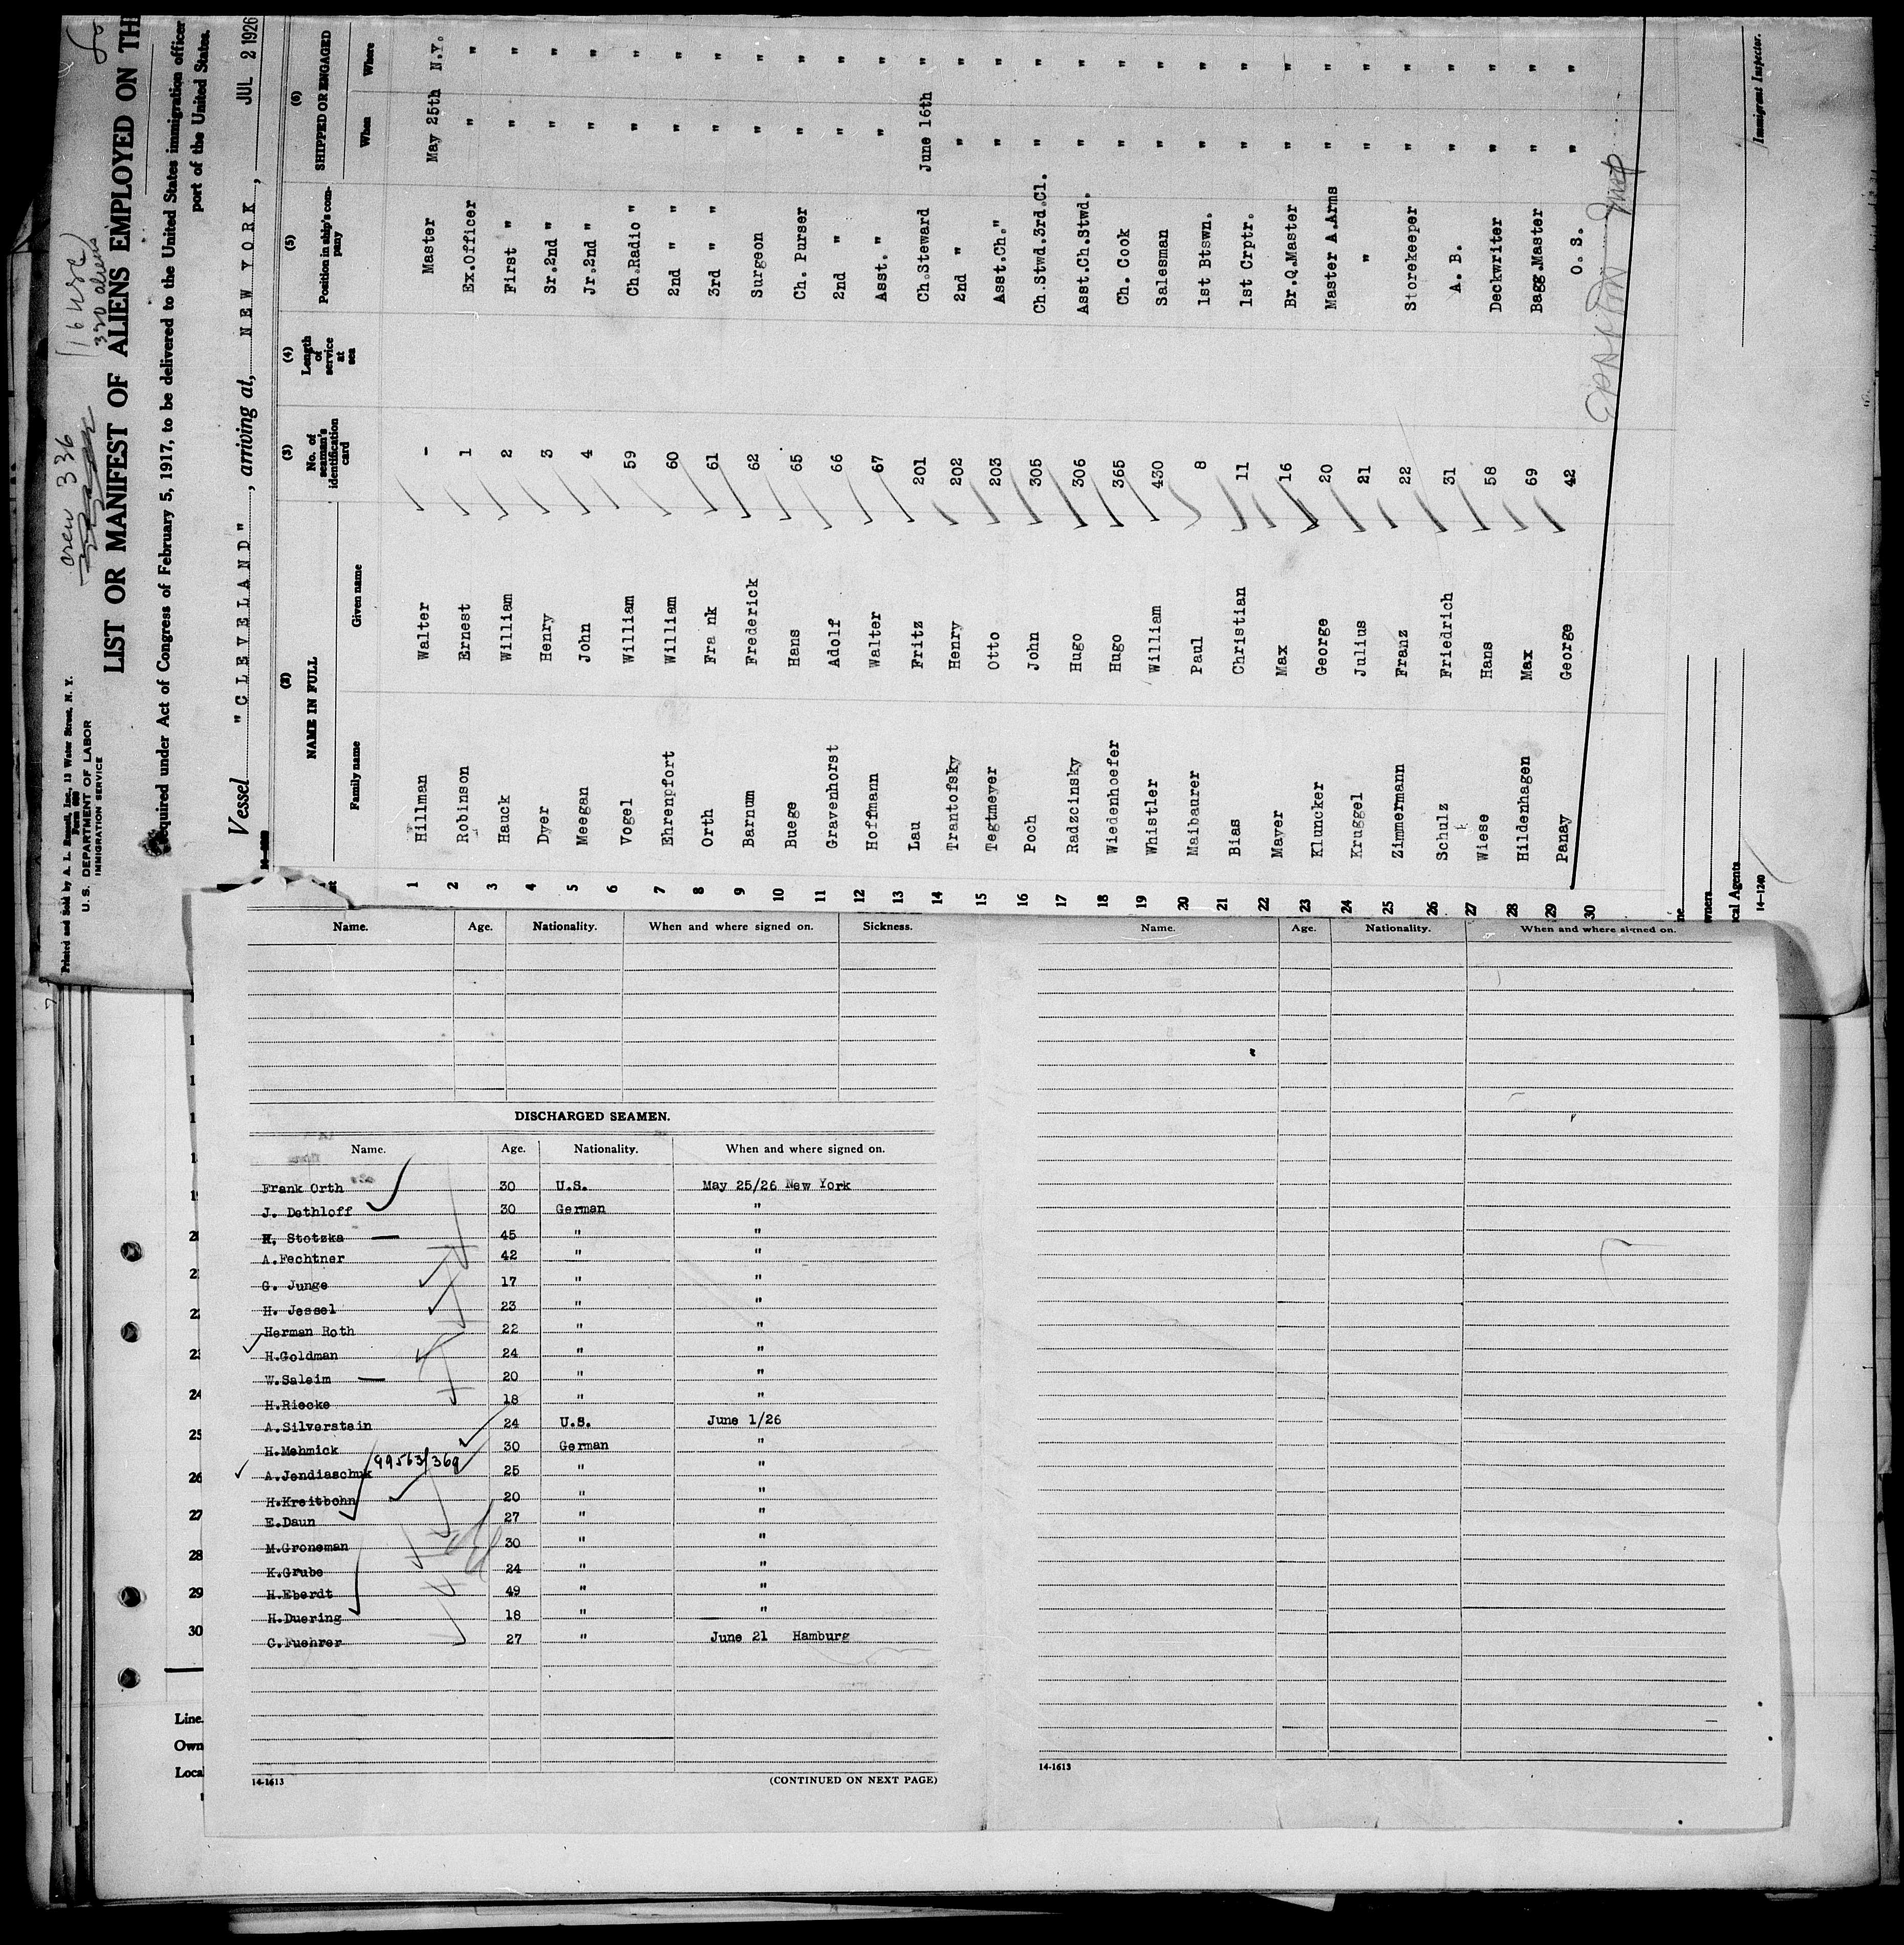 crew 336
16 USC
320 aliens
Printed and Sold by A. L. Russell, Inc., 13 Water Street, N. Y.
Form 680
U. S. DEPARTMENT OF LABOR
IMMIGRATION SERVICE
LIST OR MANIFEST OF ALIENS EMPLOYED ON TH
Required under Act of Congress of February 5, 1917, to be delivered to the United States immigration officer
port of the United States.
Vessel "CLEVELAND", arriving at, NEW YORK, JUL 2 1926
(2) (3) (4) (5) (6)
NAME IN FULL No. of seaman's identification card Length of service at sea Position in ship's company SHIPPED OR ENGAGED
Family name Given name When Where
1 Hillman Walter - Master May 25th N.Y.
2 Robinson Ernest 1 Ex.Officer " "
3 Hauck William 2 First " " "
4 Dyer Henry 3 Sr.2nd " " "
5 Meegan John 4 Jr.2nd " " "
6 Vogel William 59 Ch.Radio " " "
7 Ehrenpfort William 60 2nd " " " "
8 Orth Fra nk 61 3rd " " " "
9 Barnum Frederick 62 Surgeon " "
10 Buege Hans 65 Ch. Purser " "
11 Gravenhorst Adolf 66 2nd " " "
12 Hoffmann Walter 67 Asst. " " "
13 Lau Fritz 201 Ch.Steward June 16th "
14 Trantofsky Henry 202 2nd " " "
15 Tegtmeyer Otto 203 Asst.Ch." " "
16 Poch John 305 Ch.Stwd.3rd.Cl. " "
17 Radzcinsky Hugo 306 Asst.Ch.Stwd. " "
18 Wiedenhoefer Hugo 365 Ch. Cook " "
19 Whistler William 430 Salesman " "
20 Maibaurer Paul 8 1st Btswn. " "
21 Bias Christian 11 1st Crptr. " "
22 Mayer Max 16 Br.Q.Master " "
23 Kluncker George 20 Master A.Arms " "
24 Kruggel Julius 21 " " "
25 Zimmermann Franz 22 Storekeeper " "
26 Schulz Friedrich 31 A. B. " "
27 Wiese Hans 58 Deckwriter " "
28 Hildenhagen Max 69 Bagg.Master " "
29 Panay George 42 O. S. " "
30
Immigrant Inspector.
ne
wners
cal Agents
14—1240
Name. Age. Nationality. When and where signed on. Sickness.
DISCHARGED SEAMEN.
Name. Age. Nationality. When and where signed on.
Frank Orth 30 U.S. May 25/26 New York
J. Dethloff 30 German "
H. Stotzka 45 " "
A.Fechtner 42 " "
G. Junge 17 " "
H. Jessel 23 " "
Herman Roth 22 " "
H.Goldman 24 " "
W.Saleim 20 " "
H.Riecke 18 " "
A.Silverstein 24 U.S. June 1/26
H.Mehmick 30 German "
A.Jendiaschuk 99563/369 25 " "
H.Kreitbohn 20 " "
E.Daun 27 " "
M.Groneman 30 " "
K.Grube 24 " "
H.Eberdt 49 " "
H.Duering 18 " "
C.Fuehrer 27 " June 21 Hamburg
14-1613 (CONTINUED ON NEXT PAGE)
Name. Age. Nationality. When and where signed on.
14-1613
2
2
24
25
26
27
28
29
30
Line
Own
Loca